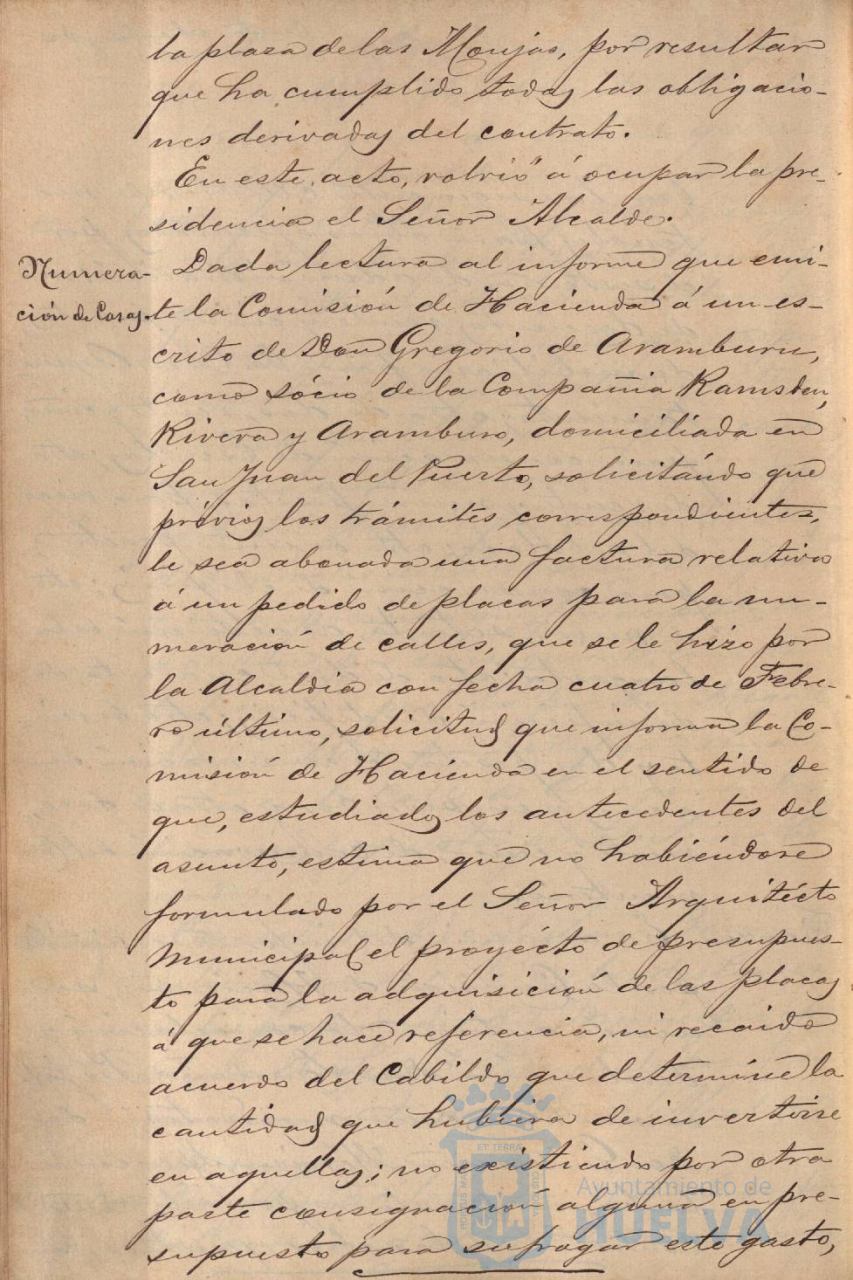 la plaza de las Monjas, por resultar
que ha cumplido todas las obligacio-
nes derivadas del contrato.
En este acto, volvió á ocupar la pre-
sidencia el Señor Alcalde.
Numera-
ción de Casas.
Dada lectura al informe que emi-
te la Comisión de Hacienda á un es-
crito de Don Gregorio de Aramburu,
como sócio de la Compañia Ramsden,
Rivera y Aramburo, domiciliada en
San Juan del Puerto, solicitándo que
prévios los trámites correspondientes,
le sea abonada una factura relativa
á un pedido de placas para la nu-
meración de calles, que se le hizo por
la Alcaldia con fecha cuatro de Febre-
ro último, solicitud que informa la Co-
misión de Hacienda en el sentido de
que, estudiados los antecedentes del
asunto, estima que no habiéndose
formulado por el Señor Arquitécto
Municipal el proyécto de presupues-
to para la adquisición de las placas
á que se hace referencia, ni recaido
acuerdo del Cabildo que determine la
cantidad que hubiera de invertirse
en aquellas; no existiendo por otra
parte consignación alguna en pre-
supuesto para sufragar este gasto,
ET TERRA
Ayuntamiento de
HUELVA